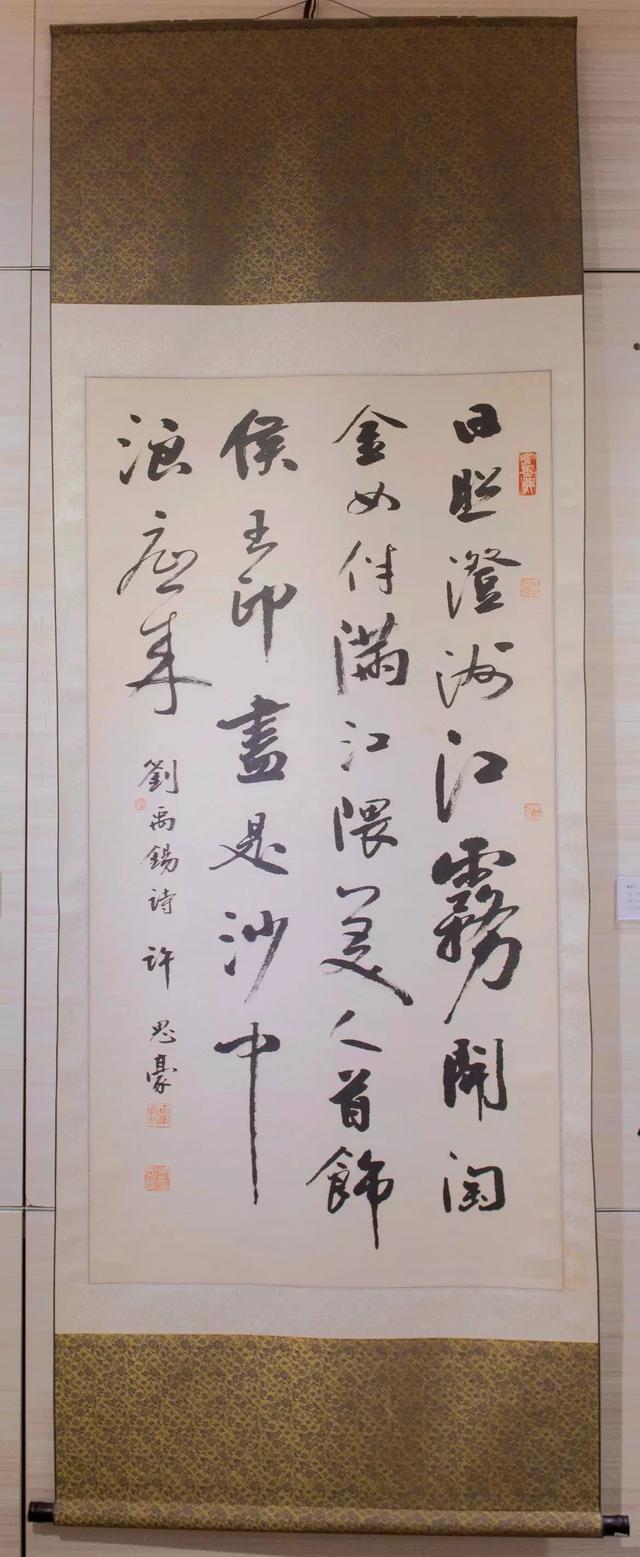 日照澄洲江霧開淘
金女伴滿江隈美人首飾
侯王印盡是沙中
浪底来
劉禹錫詩 許思豪